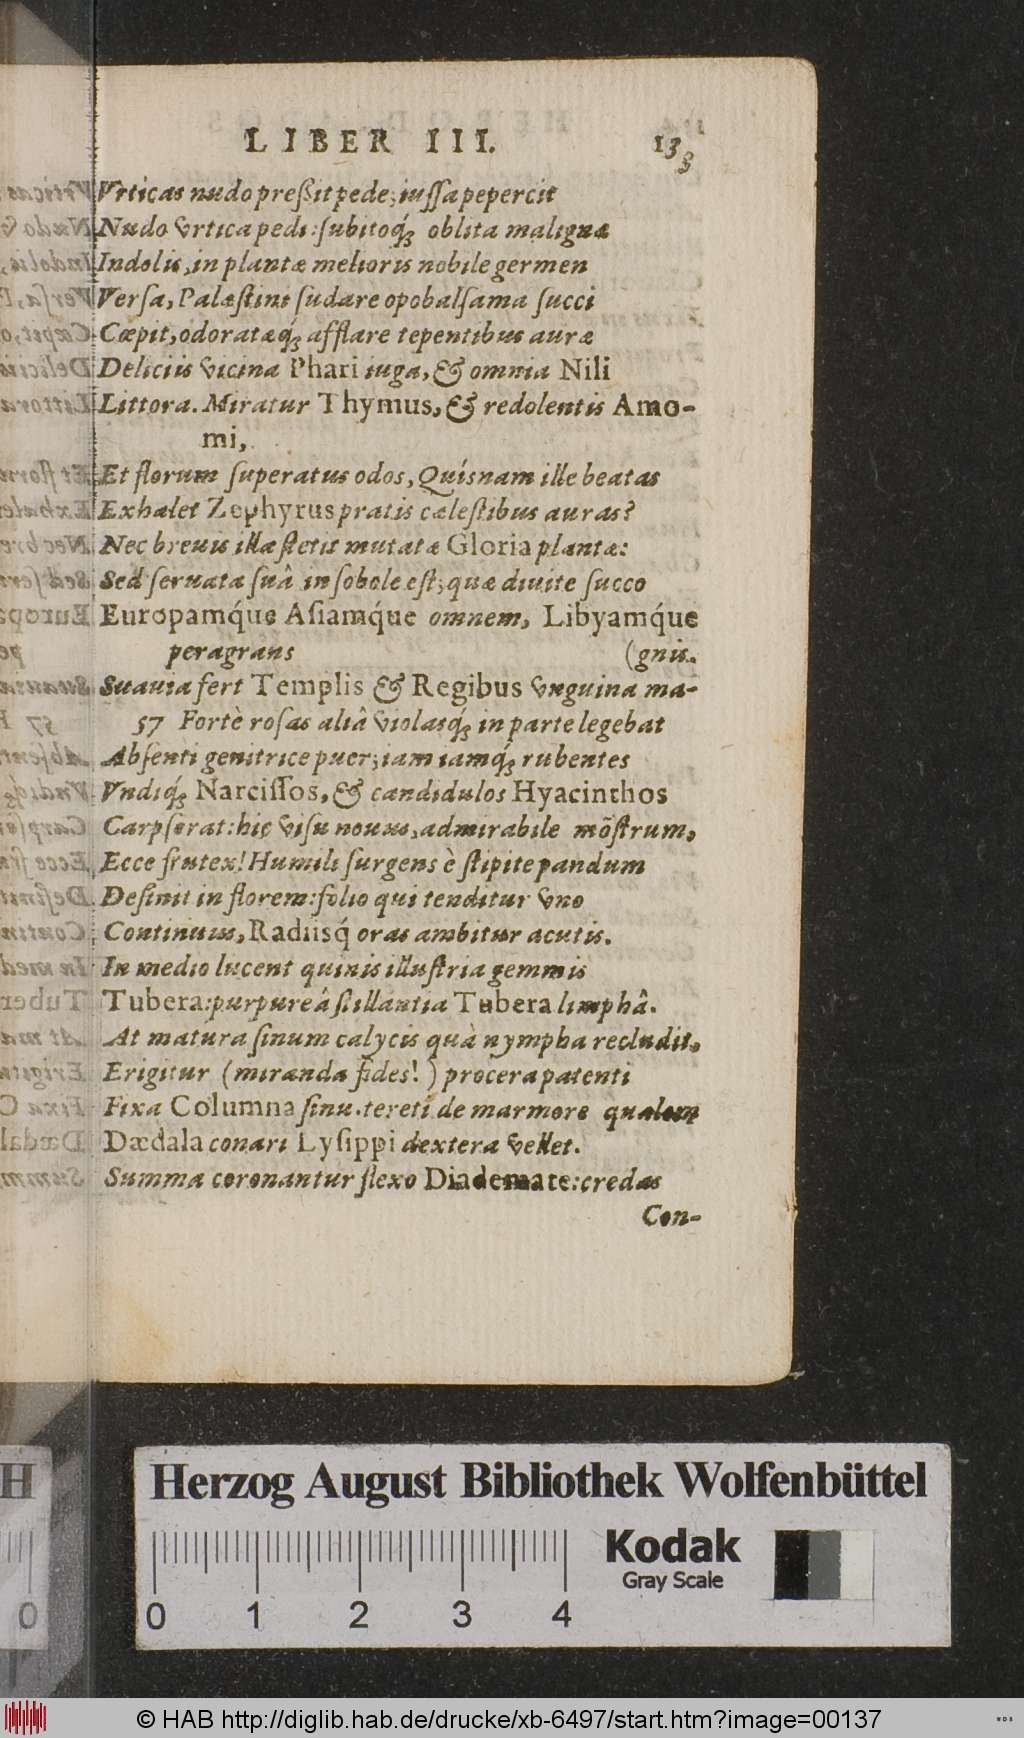 LIBER III. 133
Vrticas nudo preßit pede; iussa pepercit
Nudo vrtica pedi: subitoq́; oblita malignæ
Indolis, in plantæ melioris nobile germen
Versa, Palæstini sudare opobalsama succi
Cœpit, odoratæq́; afflare tepentibus auræ
Deliciis vicina Phari iuga, & omnia Nili
Littora. Miratur Thymus, & redolentis Amo-
mi,
Et florum superatus odos, Quísnam ille beatas
Exhalet Zephyrus pratis cælestibus auras?
Nec breuis illæ stetit mutatæ Gloria plantæ:
Sed seruata suâ in sobole est; quæ diuite succo
Europamq́ue Asiamq́ue omnem, Libyamq́ue
peragrans (gnis.
Suauia fert Templis & Regibus vnguina ma-
57 Fortè rosas aliâ violasq́; in parte legebat
Absenti genitrice puer; iam iamq́; rubentes
Vndiq́; Narcissos, & candidulos Hyacinthos
Carpserat: hic visu nouus, admirabile mõstrum,
Ecce frutex! Humili surgens è stipite pandum
Desinit in florem: folio qui tenditur vno
Continuus, Radiisq́ oras ambitur acutis.
In medio lucent quinis illustria gemmis
Tubera: purpureâ stillantia Tubera limphâ.
At matura sinum calycis quà nympha recludit,
Erigitur (miranda fides!) procera patenti
Fixa Columna sinu. tereti de marmore qualem
Dædala conari Lysippi dextera vellet.
Summa coronantur flexo Diademate: credas
Con-
Herzog August Bibliothek Wolfenbüttel
Kodak
Gray Scale
0 1 2 3 4
© HAB http://diglib.hab.de/drucke/xb-6497/start.htm?image=00137